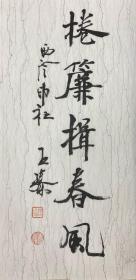 捲簾揖春風
西泠印社 王